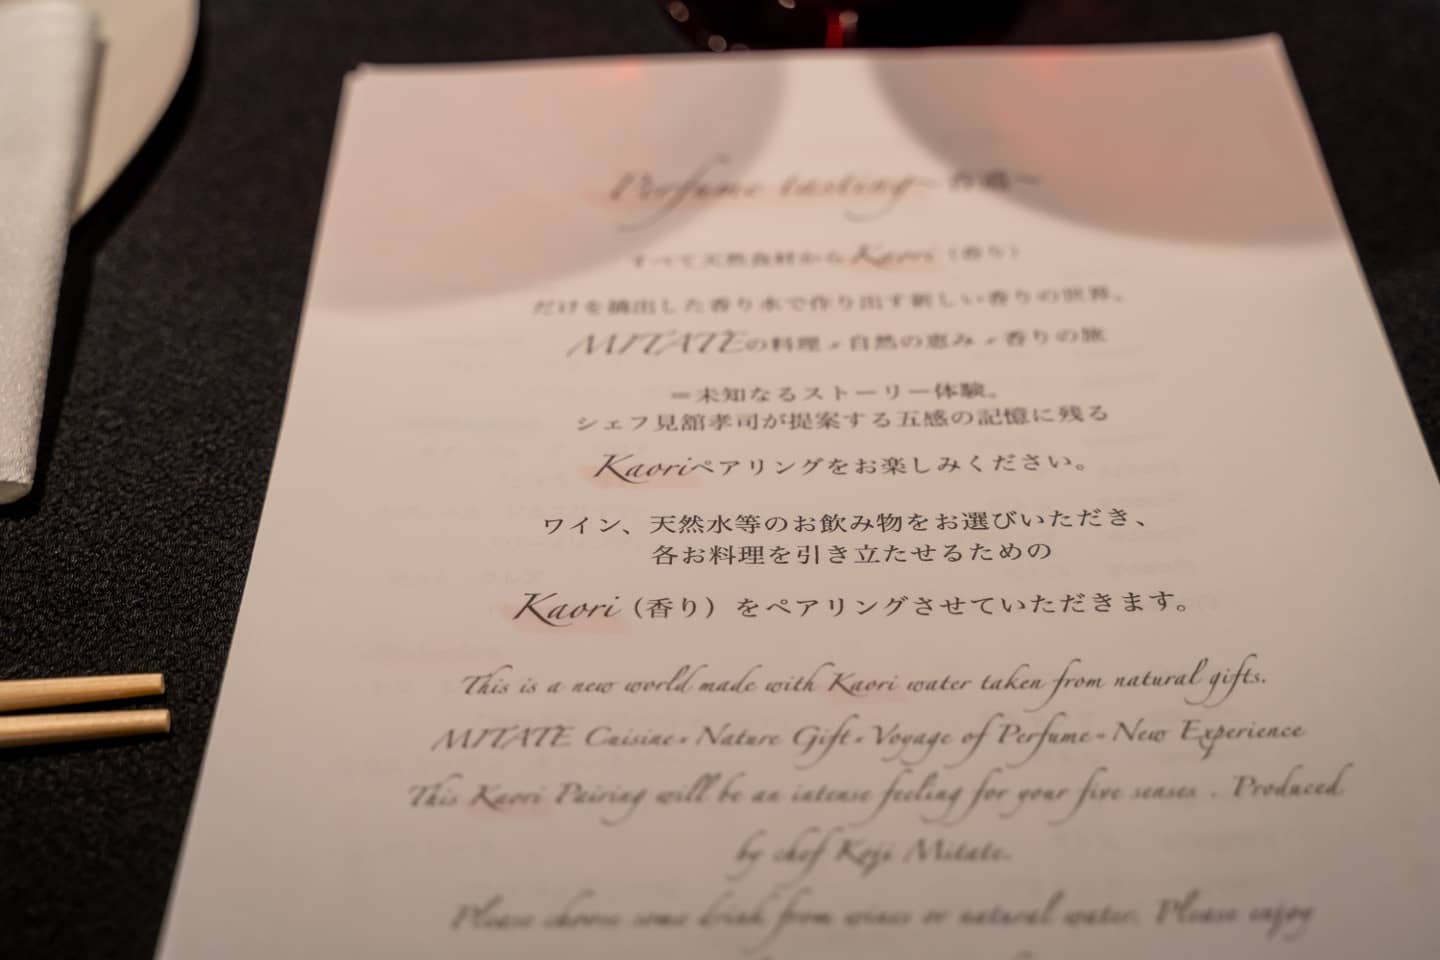 Perfume tasting
すべて天然食材からKaori（香り）
だけを摘出した香り水で作り出す新しい香りの世界。
MITATEの料理×自然の恵み×香りの旅
＝未知なるストーリー体験。
シェフ見舘孝司が提案する五感の記憶に残る
Kaoriペアリングをお楽しみください。
ワイン、天然水等のお飲み物をお選びいただき、
各お料理を引き立たせるための
Kaori（香り）をペアリングさせていただきます。
This is a new world made with Kaori water taken from natural gifts.
MITATE Cuisine×Nature Gift×Voyage of Perfume=New Experience
This Kaori Pairing will be an intense feeling for your five senses . Produced
by chef Koji Mitate.
Please choose some drink from wines or natural water. Please enjoy